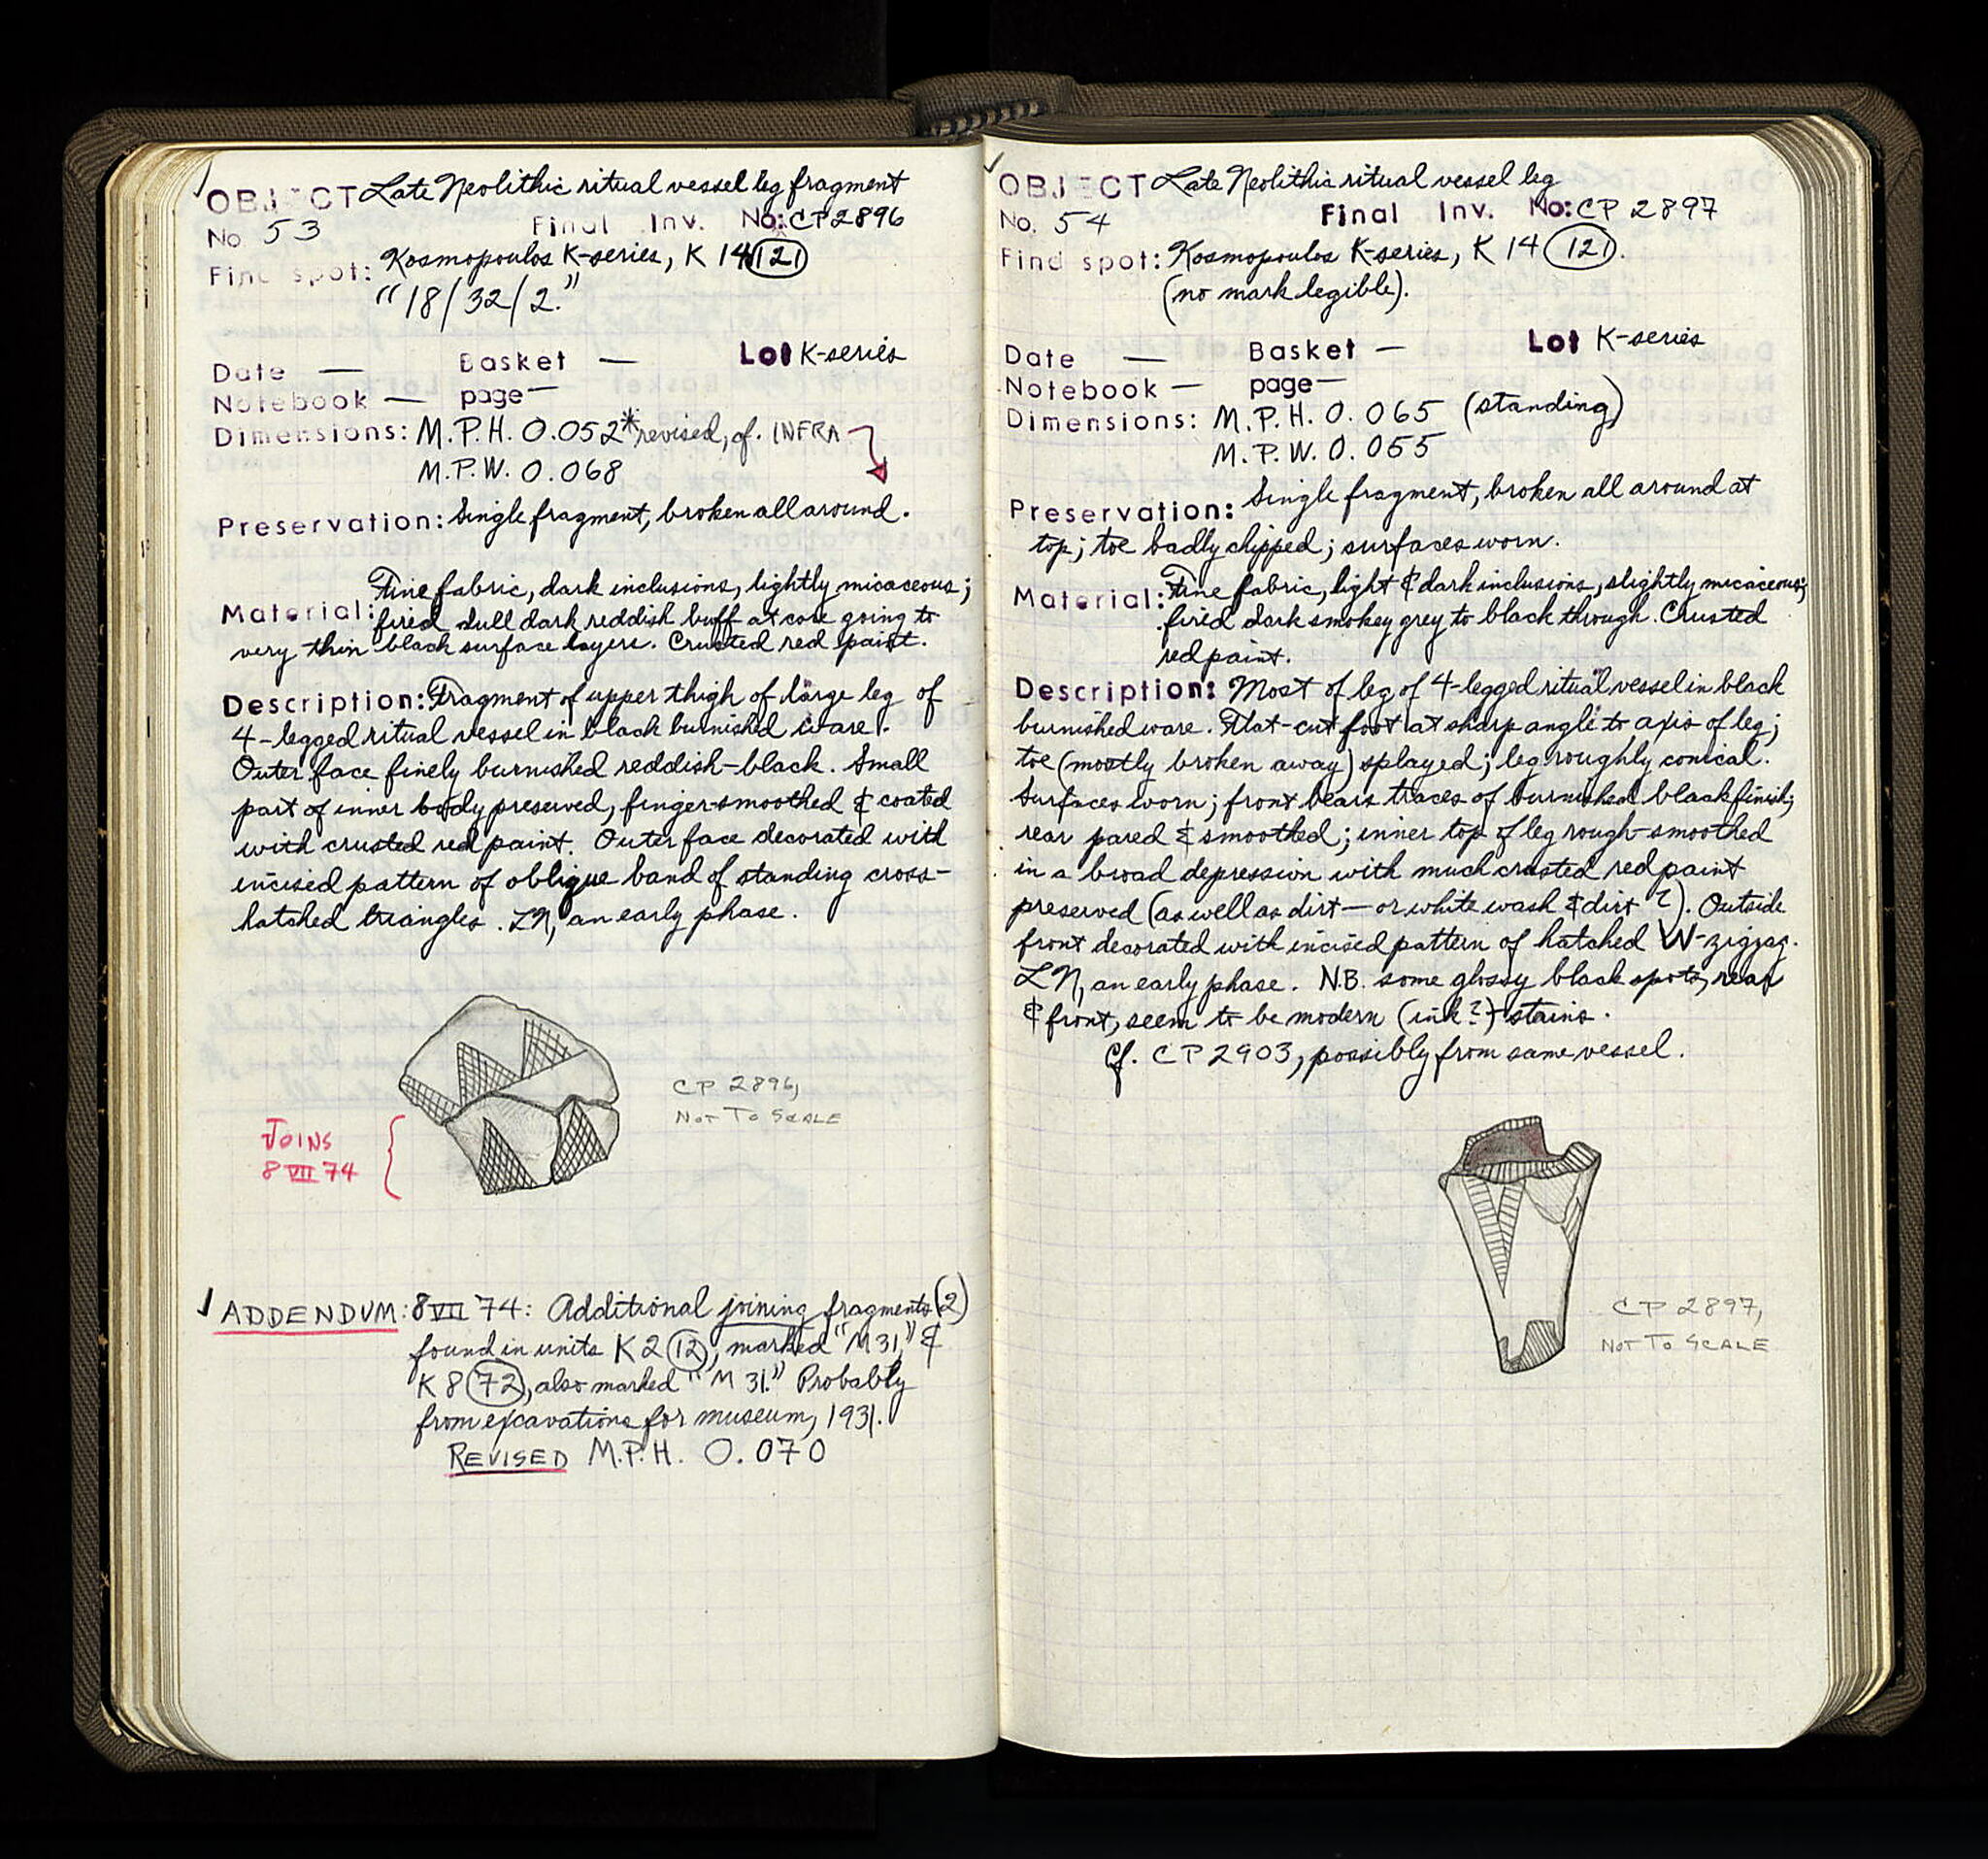 OBJECT Late Neolithic ritual vessel leg fragment
No 53 Final Inv. No: CP 2896
Find spot: Kosmopoulos K-series, K 14 (121)
"18/32/2."
Date — Basket — Lot K-series
Notebook — page —
Dimensions: M.P.H. 0.052* revised, cf. INFRA
M.P.W. 0.068
Preservation: Single fragment, broken all around.
Fine fabric, dark inclusions, lightly micaceous;
Material: fired dull dark reddish buff at core going to
very thin black surface layers. Crusted red paint.
Description: Fragment of upper thigh of large leg of
4-legged ritual vessel in black burnished ware.
Outer face finely burnished reddish-black. Small
part of inner body preserved, finger-smoothed & coated
with crusted red paint. Outer face decorated with
incised pattern of oblique band of standing cross-
hatched triangles. LN, an early phase.
CP 2896,
NOT TO SCALE
JOINS
8 VII 74
ADDENDUM: 8 VII 74: Additional joining fragments (2)
found in units K 2 (12), marked "M 31," &
K 8 (72), also marked "M 31." Probably
from excavations for museum, 1931.
REVISED M.P.H. 0.070
OBJECT Late Neolithic ritual vessel leg
No. 54 Final Inv. No: CP 2897
Find spot: Kosmopoulos K-series, K 14 (121).
(no mark legible).
Date — Basket — Lot K-series
Notebook — page —
Dimensions: M.P.H. 0.065 (standing)
M.P.W. 0.055
Preservation: Single fragment, broken all around at
top; toe badly chipped; surfaces worn.
Material: Fine fabric, light & dark inclusions, slightly micaceous;
fired dark smokey grey to black through. Crusted
red paint.
Description: Most of leg of 4-legged ritual vessel in black
burnished ware. Flat-cut foot at sharp angle to axis of leg;
toe (mostly broken away) splayed; leg roughly conical.
Surfaces worn; front bears traces of burnished black finish;
rear pared & smoothed; inner top of leg rough-smoothed
in a broad depression with much crusted red paint
preserved (as well as dirt — or white wash & dirt ?). Outside
front decorated with incised pattern of hatched W-zigzag.
LN, an early phase. N.B. some glossy black spots, rear
& front, seem to be modern (ink?) stains.
Cf. CP 2903, possibly from same vessel.
CP 2897,
NOT TO SCALE